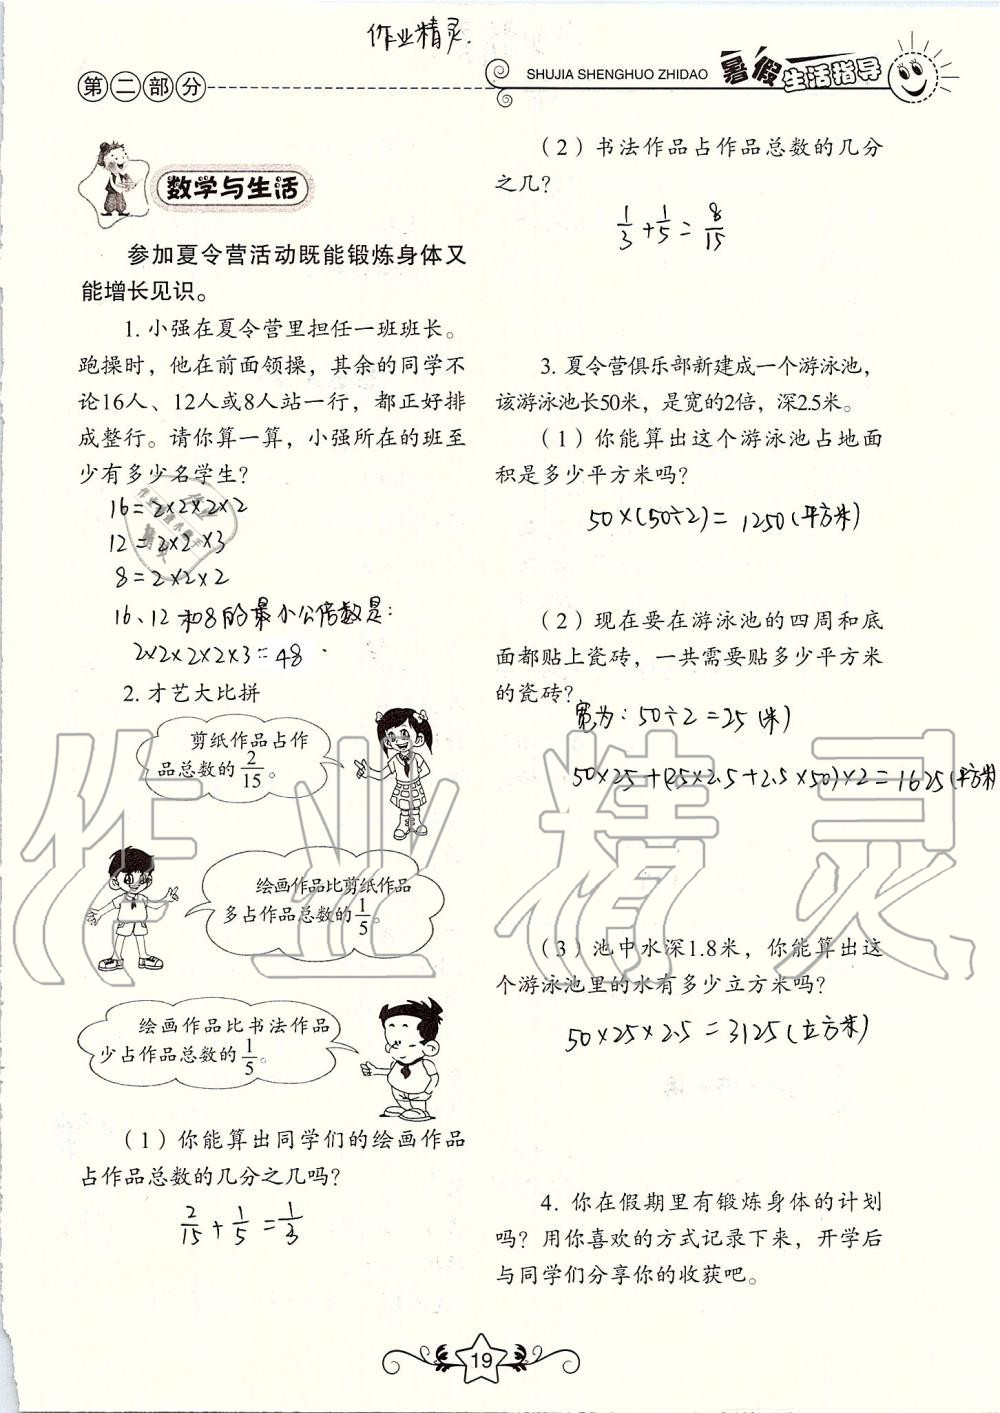 作业精灵.
第二部分
SHUJIA SHENGHUO ZHIDAO 暑假生活指导
数学与生活
参加夏令营活动既能锻炼身体又
能增长见识。
1. 小强在夏令营里担任一班班长。
跑操时，他在前面领操，其余的同学不
论16人、12人或8人站一行，都正好排
成整行。请你算一算，小强所在的班至
少有多少名学生？
16=2×2×2×2
12=2×2×3
8=2×2×2
16、12和8的最小公倍数是：
2×2×2×2×3=48
2. 才艺大比拼
剪纸作品占作
品总数的2/15。
绘画作品比剪纸作品
多占作品总数的1/5。
绘画作品比书法作品
少占作品总数的1/5。
（1）你能算出同学们的绘画作品
占作品总数的几分之几吗？
2/15+1/5=1/3
（2）书法作品占作品总数的几分
之几？
1/3+1/5=8/15
3. 夏令营俱乐部新建成一个游泳池，
该游泳池长50米，是宽的2倍，深2.5米。
（1）你能算出这个游泳池占地面
积是多少平方米吗？
50×(50÷2)=1250(平方米)
（2）现在要在游泳池的四周和底
面都贴上瓷砖，一共需要贴多少平方米
的瓷砖？
宽为：50÷2=25(米)
50×25+(25×2.5+2.5×50)×2=1625(平方米)
（3）池中水深1.8米，你能算出这
个游泳池里的水有多少立方米吗？
50×25×2.5=3125(立方米)
4. 你在假期里有锻炼身体的计划
吗？用你喜欢的方式记录下来，开学后
与同学们分享你的收获吧。
19
作业精灵